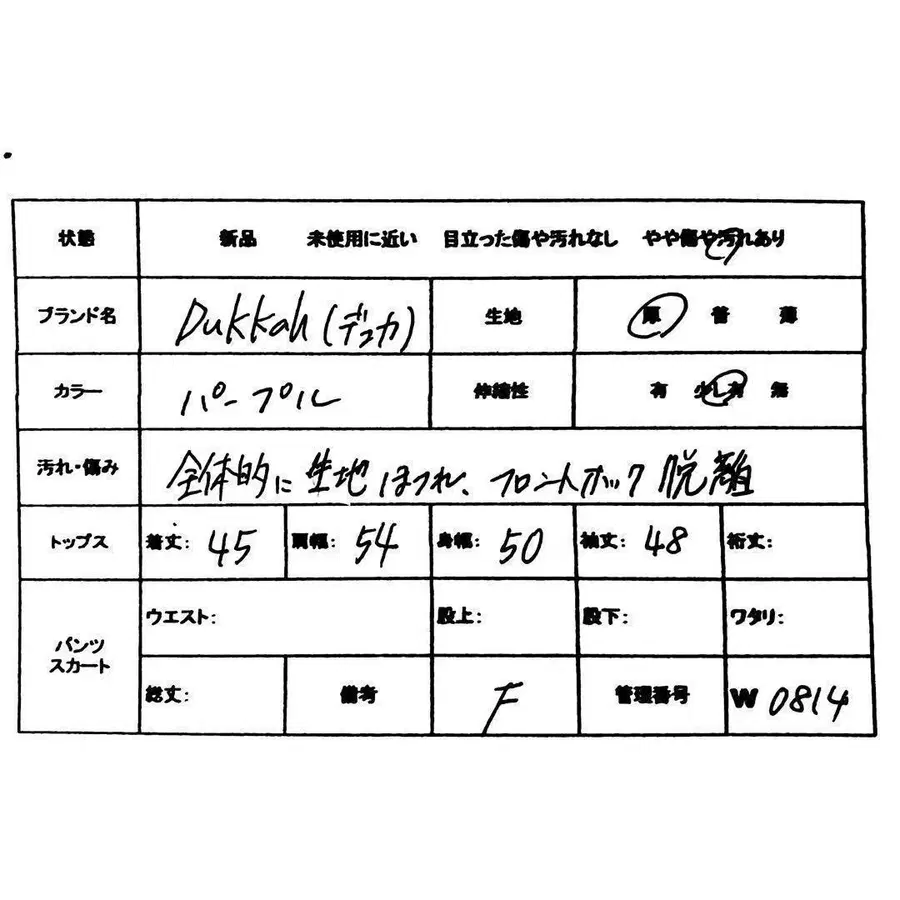 状態 新品 未使用に近い 目立った傷や汚れなし やや傷や汚れあり
ブランド名 Dukkah(デュカ) 生地 厚 普 薄
カラー パープル 伸縮性 有 少し有 無
汚れ・傷み 全体的に生地ほつれ、フロントホック脱離
トップス 着丈: 45 肩幅: 54 身幅: 50 袖丈: 48 裄丈:
パンツ スカート ウエスト: 股上: 股下: ワタリ:
総丈: 備考 F 管理番号 W 0814